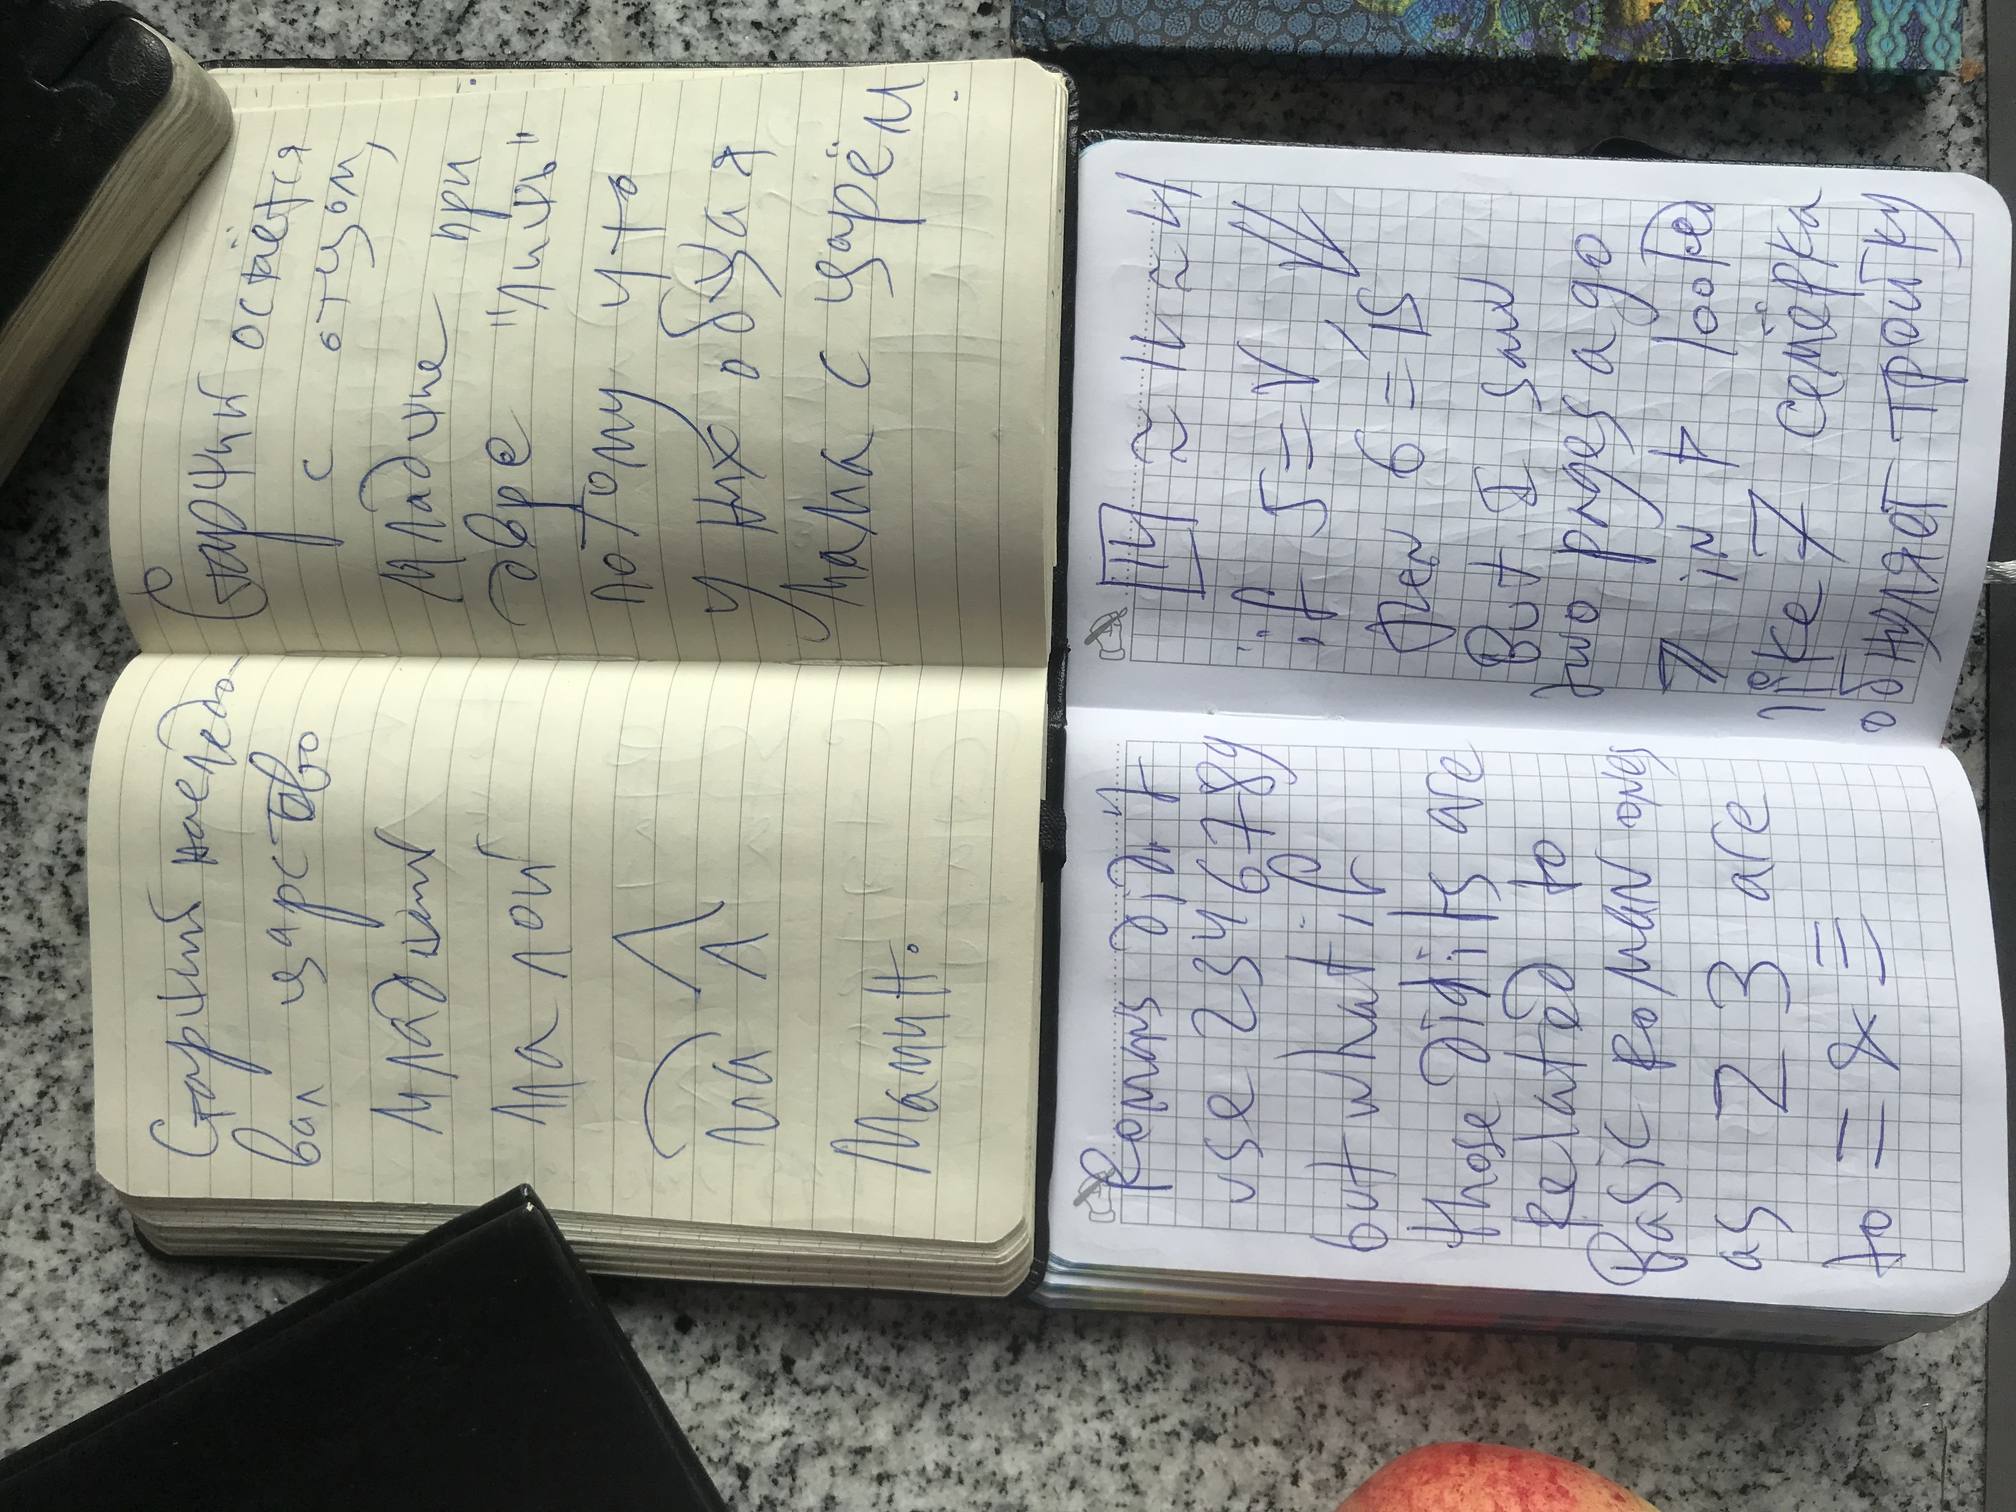 Старший наследо-
вал царство
Младший
Малой
Ма Л
Мамин.
Старший остаётся
с отцом,
Младшие при
дворе "лишь"
потому что
у них общая
мама с царём
Romans didn't
use 2346789
but what if
those digits are
Related to
Basic Roman ones
as 2 3 are
to = &
IV ~ IV ~ 4
if 5 = V
then 6 =
But I saw
two pages ago
7 in 4 looked
like 7 семёрка
обнуляет тройку